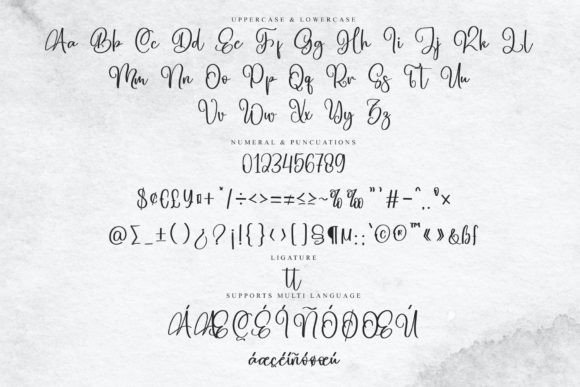 UPPERCASE & LOWERCASE
Aa Bb Cc Dd Ee Ff Gg Hh Ii Jj Kk Ll
Mm Nn Oo Pp Qq Rr Ss Tt Uu
Vv Ww Xx Yy Zz
NUMERAL & PUNCUATIONS
0123456789
$¢€£¥¤+*/÷<>=≠≤≥~%‰"'#-^
@∑_±()¿?¡!{}‹›[]§¶µ::`©®™«»&
LIGATURE
tt
SUPPORTS MULTI LANGUAGE
ÁÆÇÉÍÑÓØŒÚ
áæçéíñóøœú